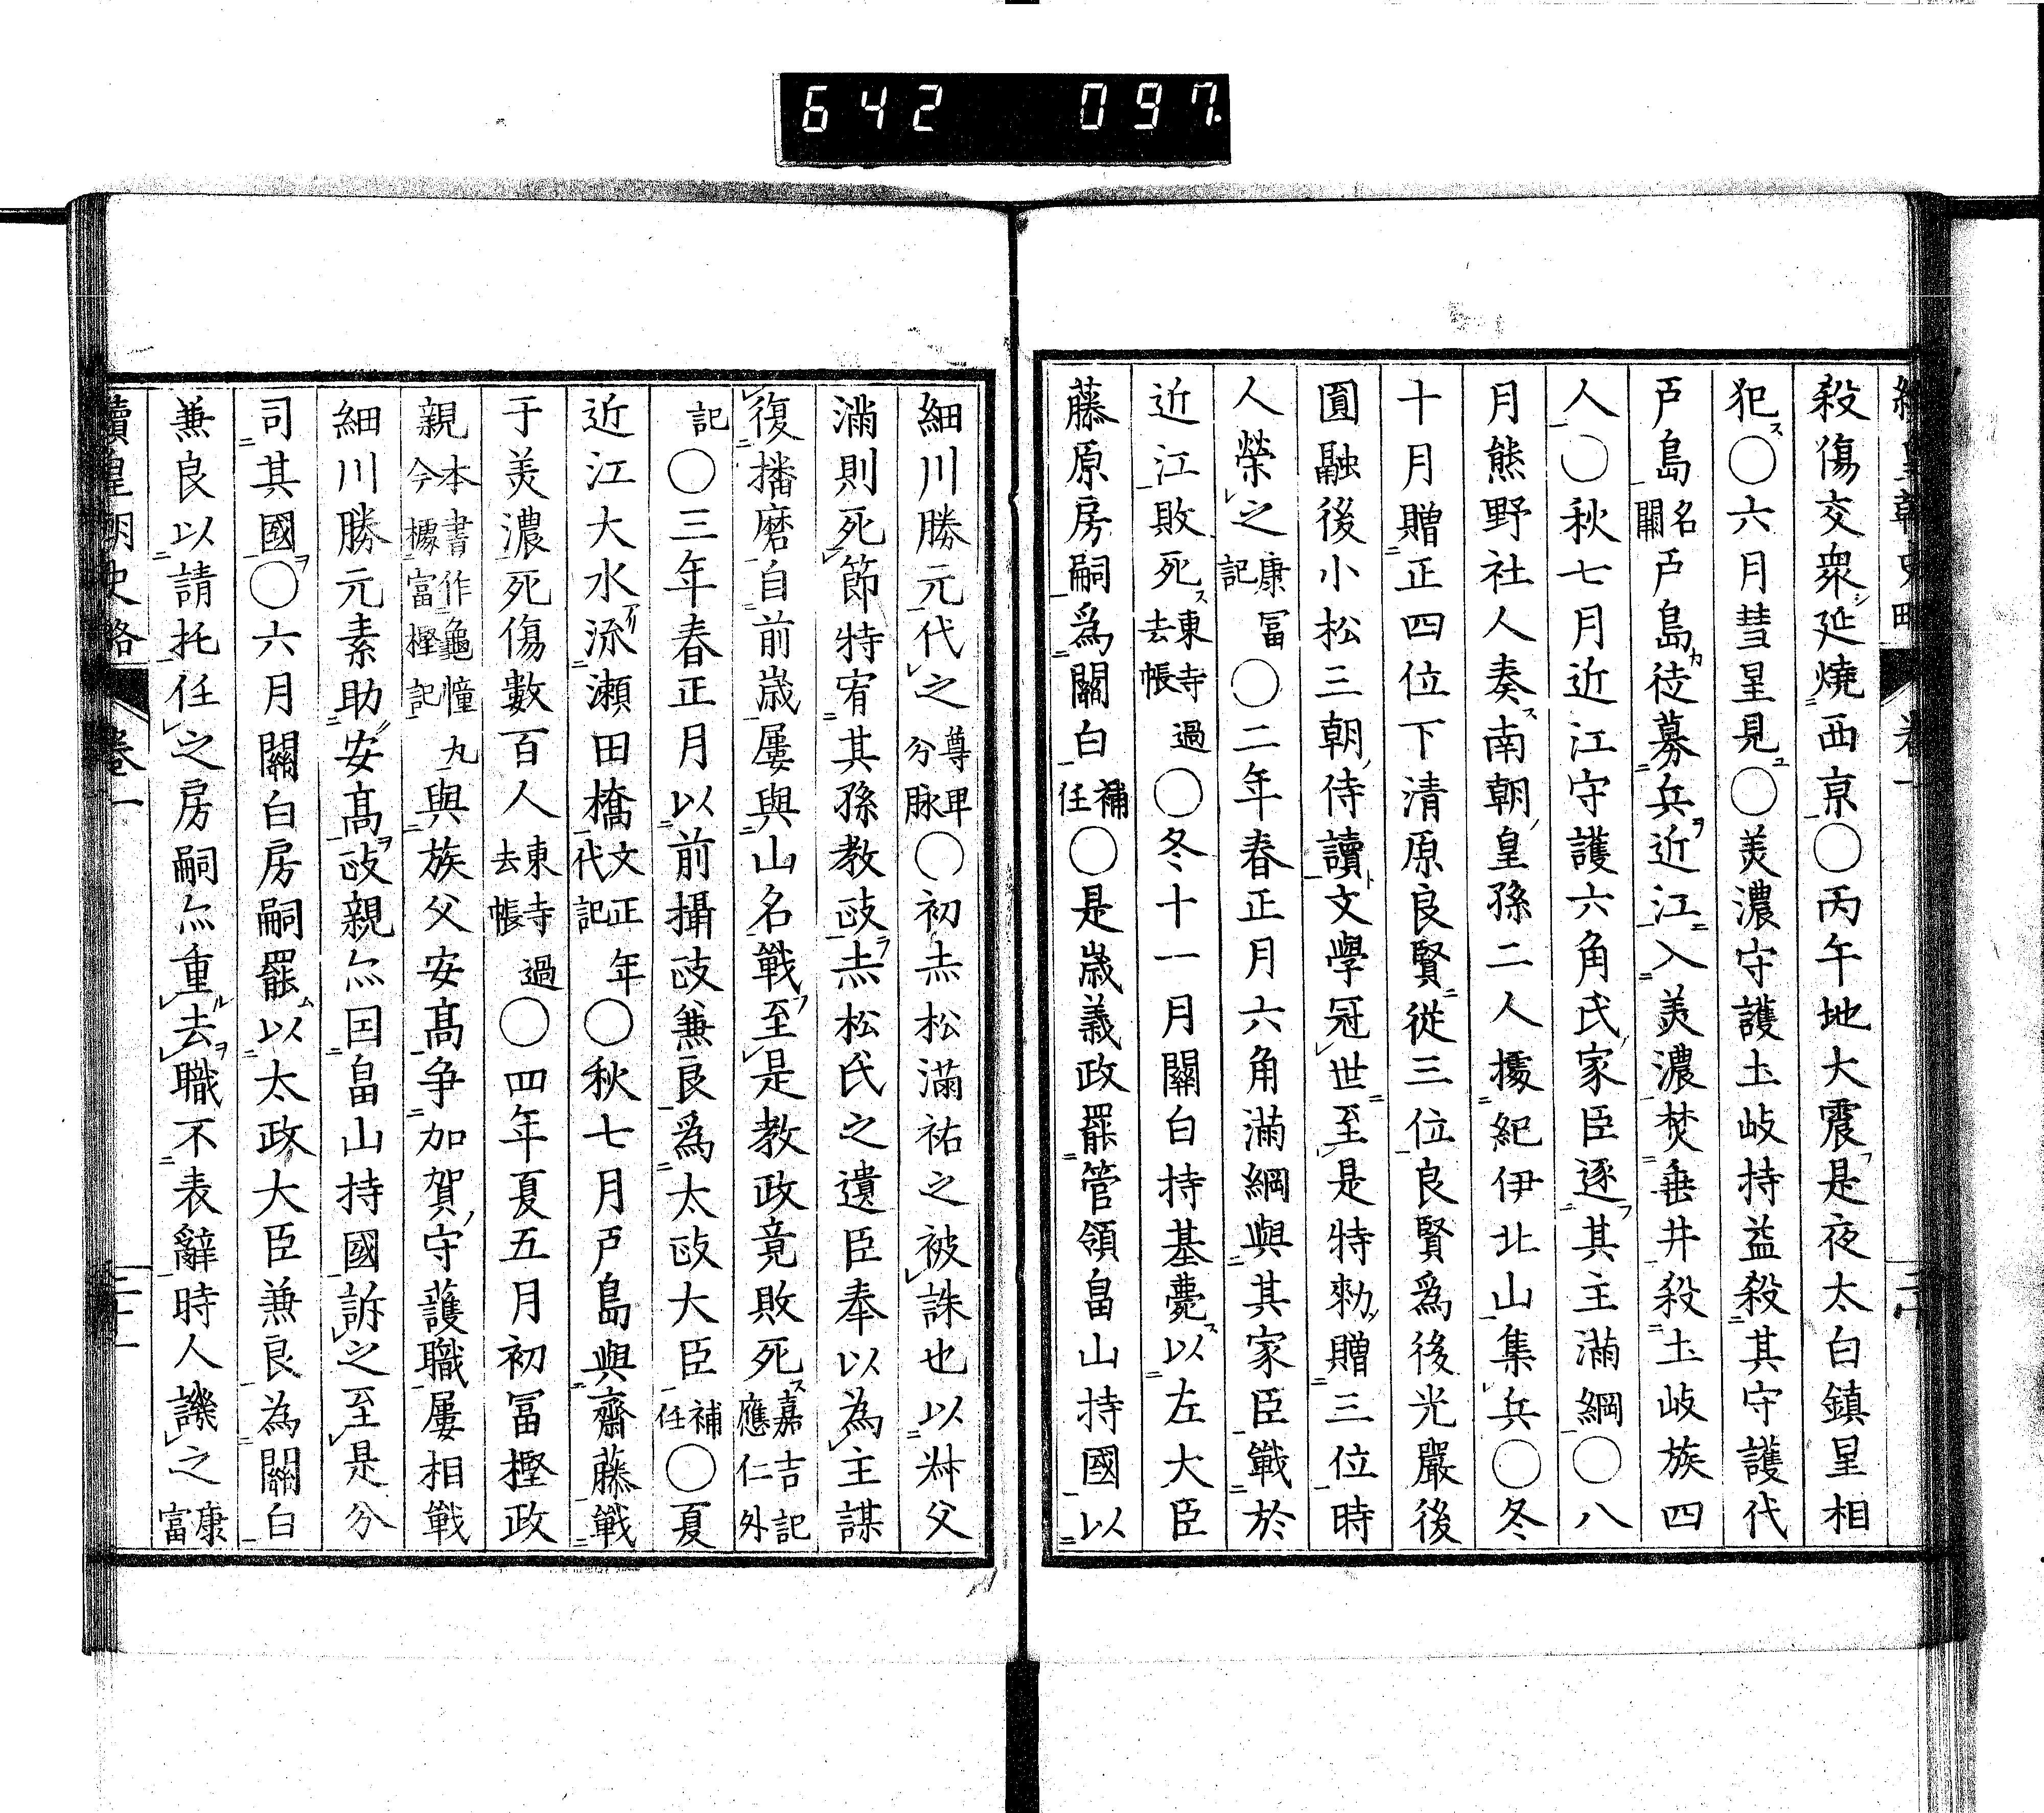 642 097.
殺傷交衆延燒西京〇丙午地大震是夜太白鎮星相
犯〇六月彗星見〇美濃守護土岐持益殺其守護代
戸島名闕戸島徒募兵近江入美濃焚垂井殺土岐族四
人〇秋七月近江守護六角氏家臣逐其主滿綱〇八
月熊野社人奏南朝皇孫二人據紀伊北山集兵〇冬
十月贈正四位下清原良賢從三位良賢爲後光嚴後
圓融後小松三朝侍讀文學冠世至是特勅贈三位時
人榮之康冨記〇二年春正月六角滿綱與其家臣戰於
近江敗死東寺過去帳〇冬十一月關白持基薨以左大臣
藤原房嗣爲關白補任〇是歲義政罷管領畠山持國以
細川勝元代之尊卑分脉〇初赤松滿祐之被誅也以叔父
滿則死節特宥其孫教政赤松氏之遺臣奉以為主謀
復播磨自前歲屢與山名戰至是教政竟敗死嘉吉記應仁外
記〇三年春正月以前攝政兼良爲太政大臣補任〇夏
近江大水流瀬田橋文正年代記〇秋七月戸島與齋藤戰
于美濃死傷數百人東寺過去帳〇四年夏五月初冨樫政
親本書作龜憧丸今據富樫記與族父安髙争加賀守護職屢相戰
細川勝元素助安髙政親亦因畠山持國訴之至是分
司其國〇六月關白房嗣罷以太政大臣兼良為關白
兼良以請托任之房嗣亦重去職不表辭時人譏之康富
續皇朝史略 卷一